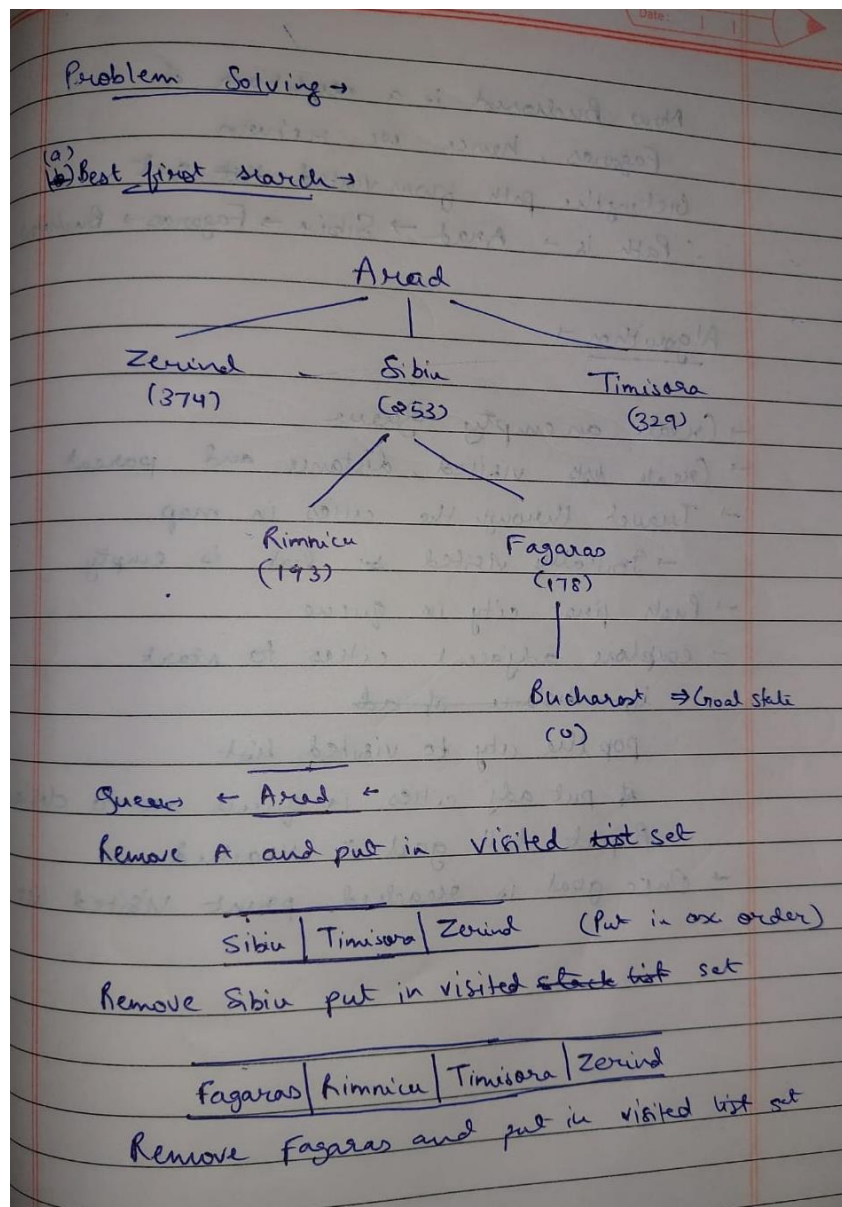 Date:
Problem Solving →
(a)
Best first search →
Arad
Zerind - Sibiu Timisora
(374) (253) (329)
Rimnicu Fagaras
(193) (178)
Bucharest ⇒ Goal state
(0)
← Arad ←
Remove A and put in visited list set
Sibiu | Timisora | Zerind (Put in asc order)
Remove Sibiu put in visited stack list set
Fagaras | Rimnicu | Timisora | Zerind
Remove Fagaras and put in visited list set